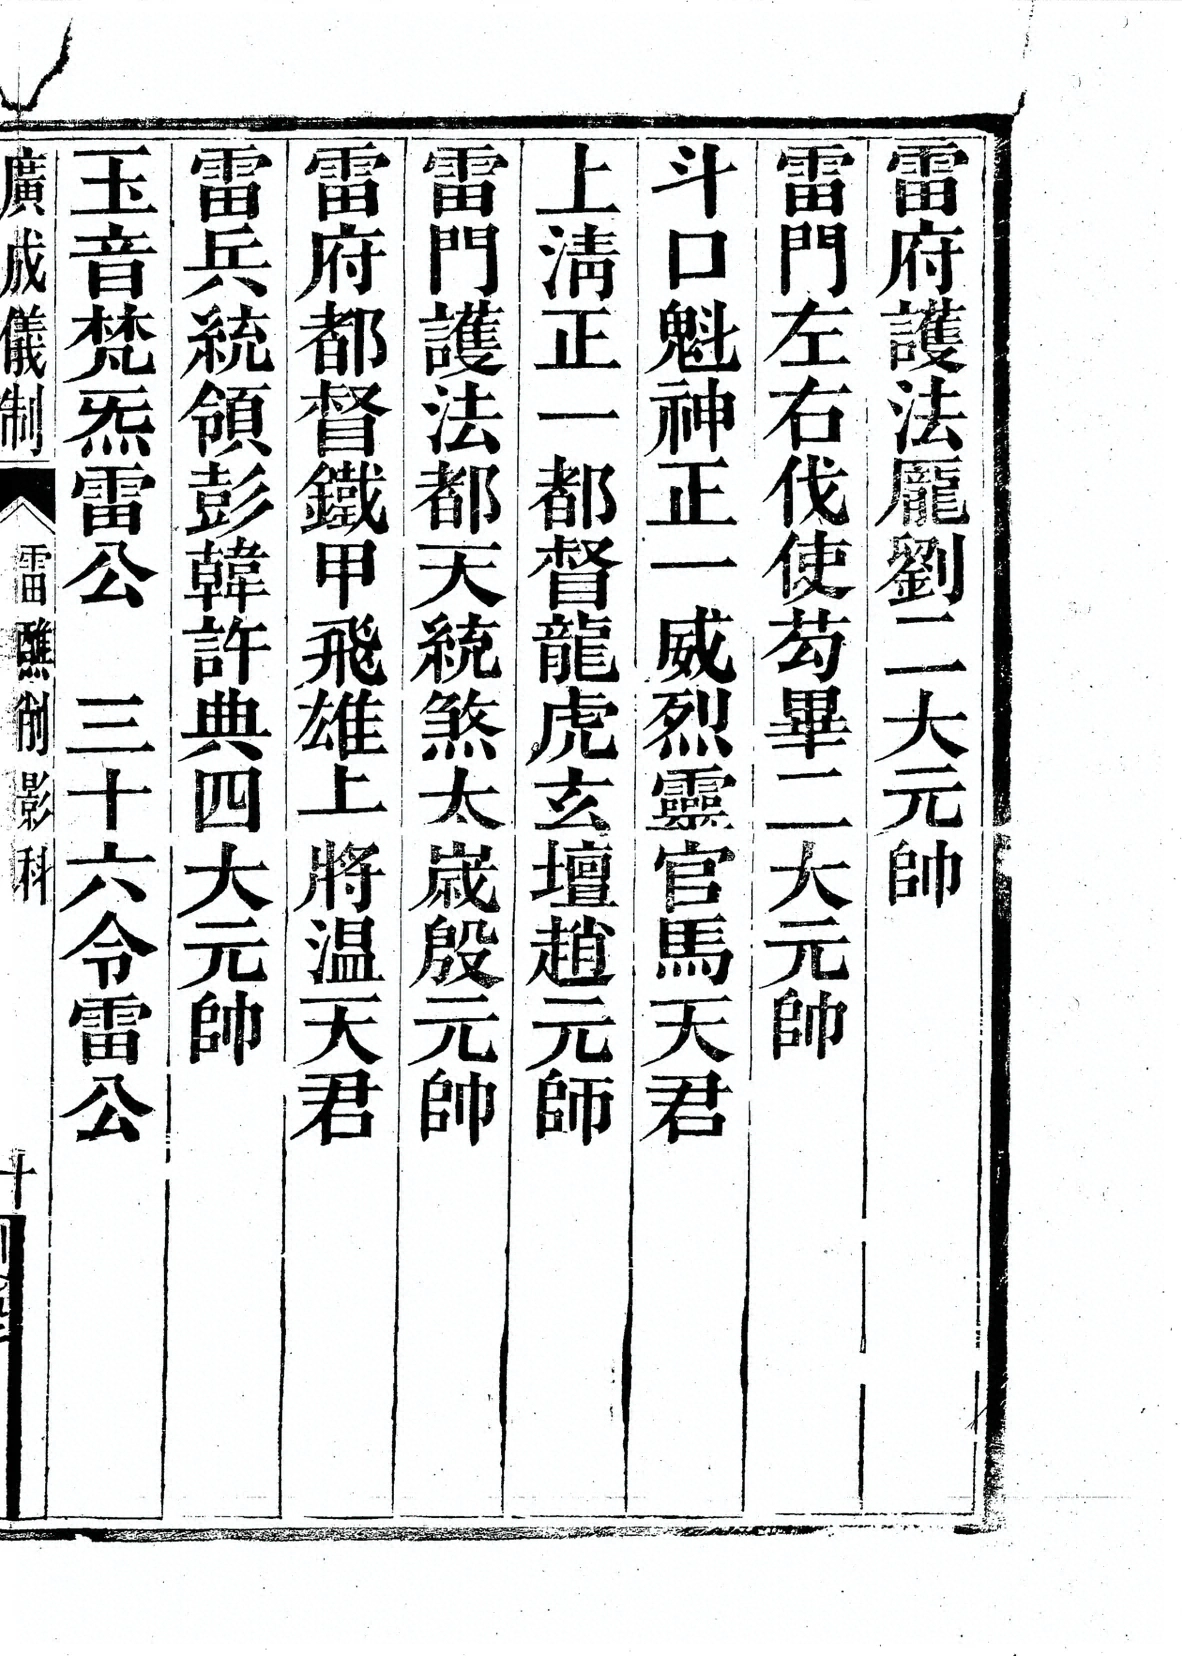 雷府護法龐劉二大元帥
雷門左右伐使苟畢二大元帥
斗口魁神正一威烈靈官馬天君
上淸正一都督龍虎玄壇趙元師
雷門護法都天統煞太歲殷元帥
雷府都督鐵甲飛雄上將温天君
雷兵統領彭韓許典四大元帥
玉音梵炁雷公　三十六令雷公
廣成儀制
雷醮削影科
十